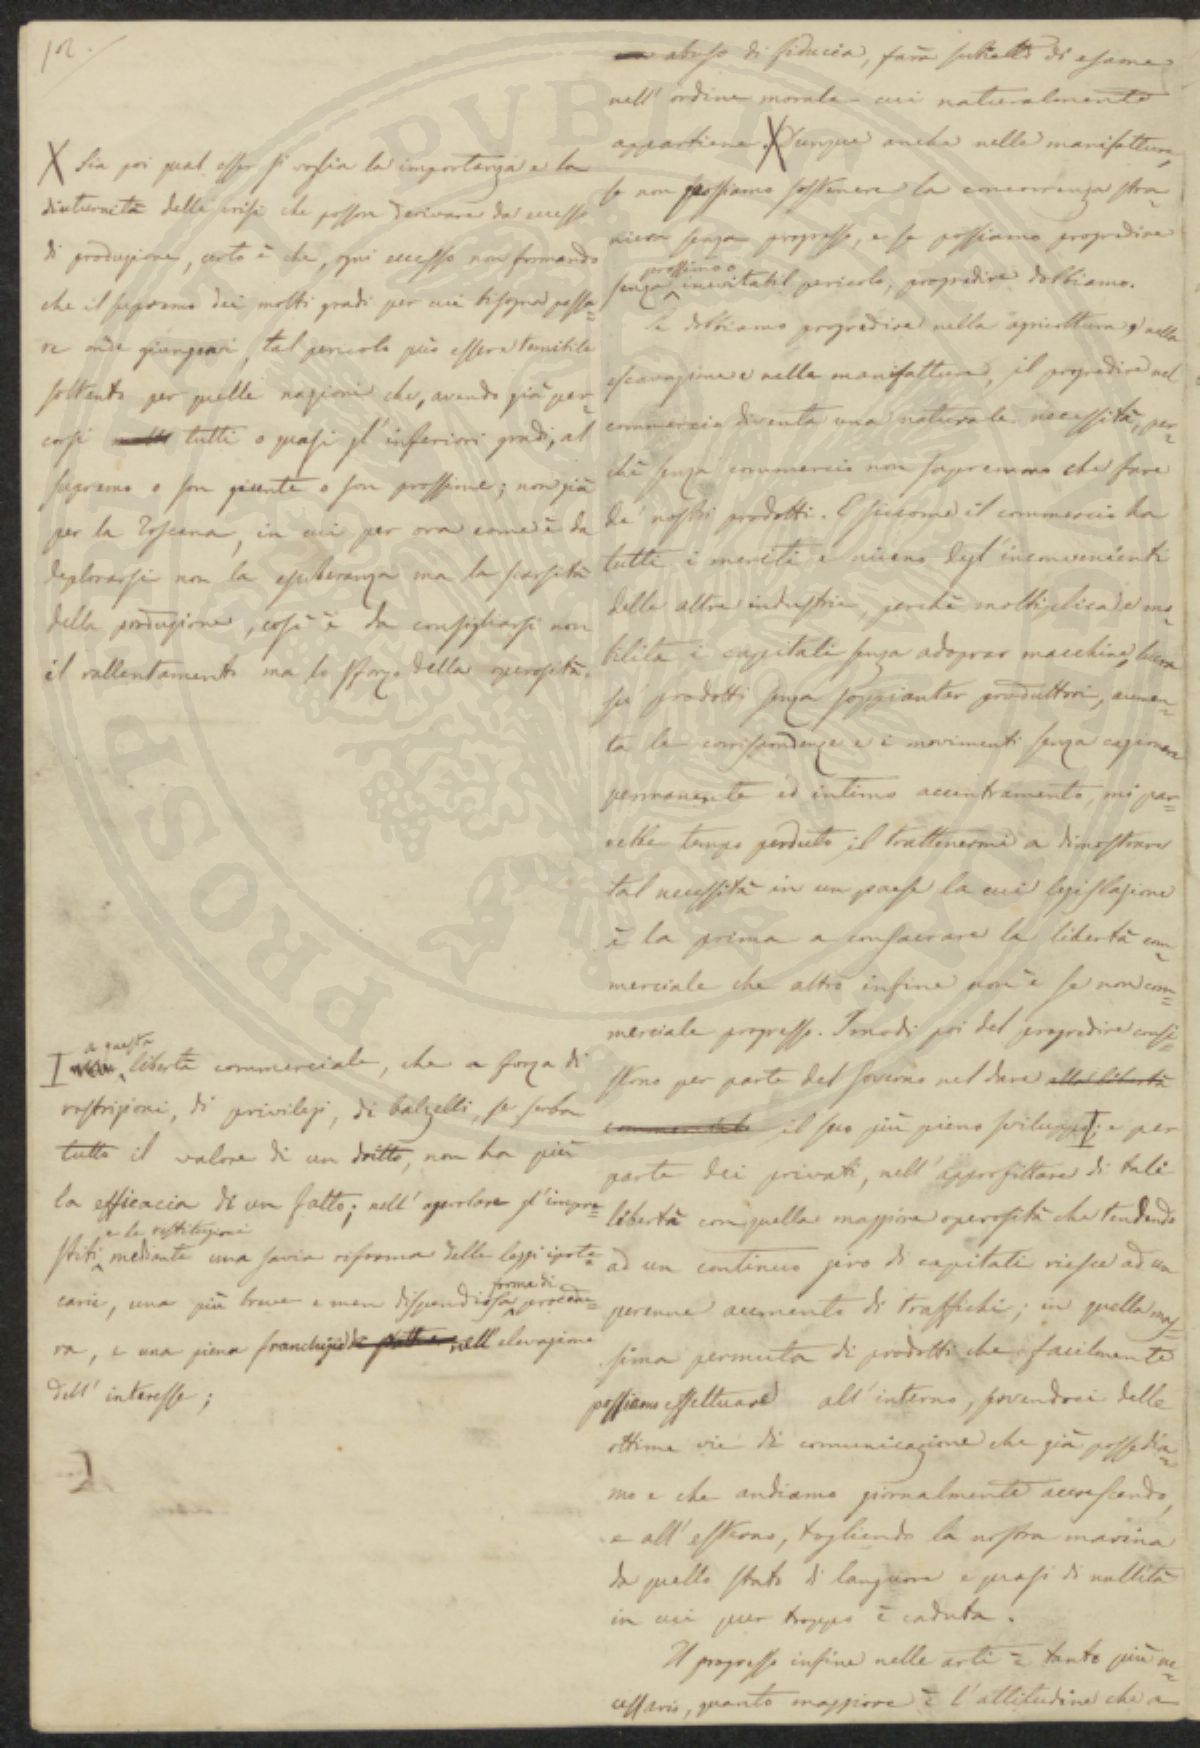 12.
X Sia poi qual esser si voglia la importanza e la
diuturnità delle crisi che posson derivare da eccesso
di produzione, certo è che, ogni eccesso non formando
che il supremo dei molti gradi per cui bisogna passa=
re onde giungervi, tal pericolo può essere temibile
soltanto per quelle nazioni che, avendo già per=
corsi tutti o quasi gl'inferiori gradi, al
supremo o son giunte o son prossime; non già
per la Toscana, in cui per ora come è da
deplorarsi non la esuberanza ma la scarsità
della produzione, così è da consigliarsi non
il rallentamento ma lo sforzo della operosità.
a questa
I libertà commerciale, che a forza di
restrizioni, di privilegi, di balzelli, se serba
tutto il valore di un dritto, non ha più
la efficacia di un fatto; nell'agevolare gl'impre=
e le restituzioni
stiti mediante una savia riforma delle leggi ipote=
forma di
carie, una più breve e men dispendiosa procedu=
ra, e una piena franchigia nell'elevazione
dell'interesse;
abuso di fiducia, sarà subietto di esame
nell'ordine morale cui naturalmente
appartiene. X Dunque anche nelle manifatture,
se non possiamo sostenere la concorrenza stra=
niera senza progresso, e se possiamo progredire
prossimo o
senza inevitabil pericolo, progredire dobbiamo.
Se dobbiamo progredire nella agricoltura, nella
escavazione e nelle manifatture, il progredire nel
commercio diventa una naturale necessità, per=
chè senza commercio non sapremmo che fare
de' nostri prodotti. E siccome il commercio ha
tutti i meriti e niuno degl'inconvenienti
delle altre industrie, perchè moltiplica e mo=
bilita i capitali senza adoprar macchine, lucra
su' prodotti senza soppiantar produttori, aumen=
ta le corrispondenze e i movimenti senza cagionare
permanente ed intimo accentramento, mi par=
rebbe tempo perduto il trattenermi a dimostrare
tal necessità in un paese la cui legislazione
è la prima a consacrare la libertà com=
merciale che altro infine non è se non com=
merciale progresso. I modi poi del progredire consi=
stono per parte del Governo nel dare alla libertà
commerciale il suo più pieno sviluppo I; e per
parte dei privati, nell'approfittare di tale
libertà con quella maggiore operosità che tendendo
ad un continuo giro di capitali riesce ad un
perenne aumento di traffichi; in quella mas=
sima permuta di prodotti che facilmente
possiamo effettuare all'interno, giovandoci delle
ottime vie di comunicazione che già possedia=
mo e che andiamo giornalmente accrescendo,
e all'esterno, togliendo la nostra marina
da quello stato di languore e quasi di nullità
in cui pur troppo è caduta.
Il progresso infine nelle arti è tanto più ne=
cessario, quanto maggiore è l'attitudine che a
PROSPERITÀ PUBBLICA